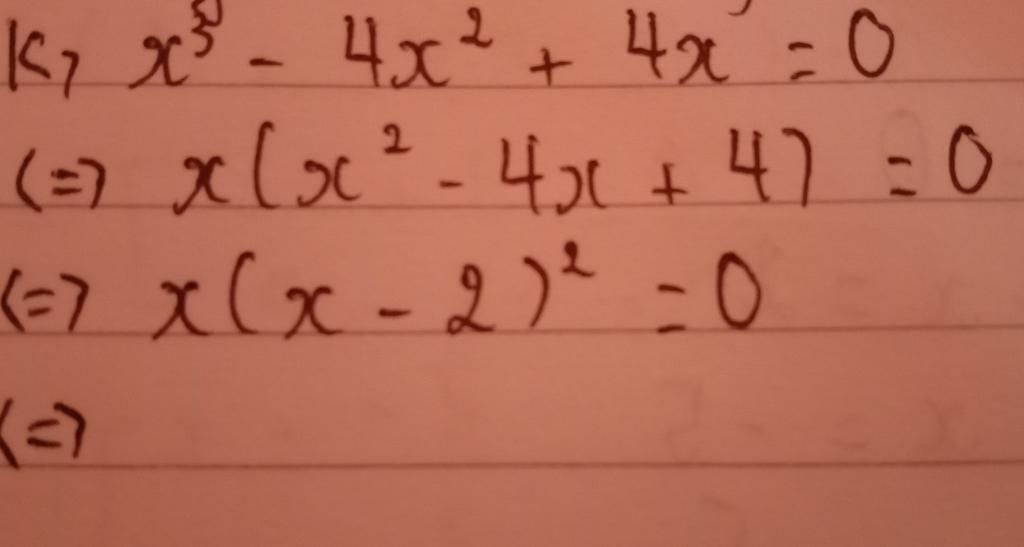 K, x³ - 4x² + 4x = 0
<=> x(x² - 4x + 4) = 0
<=> x(x - 2)² = 0
<=>